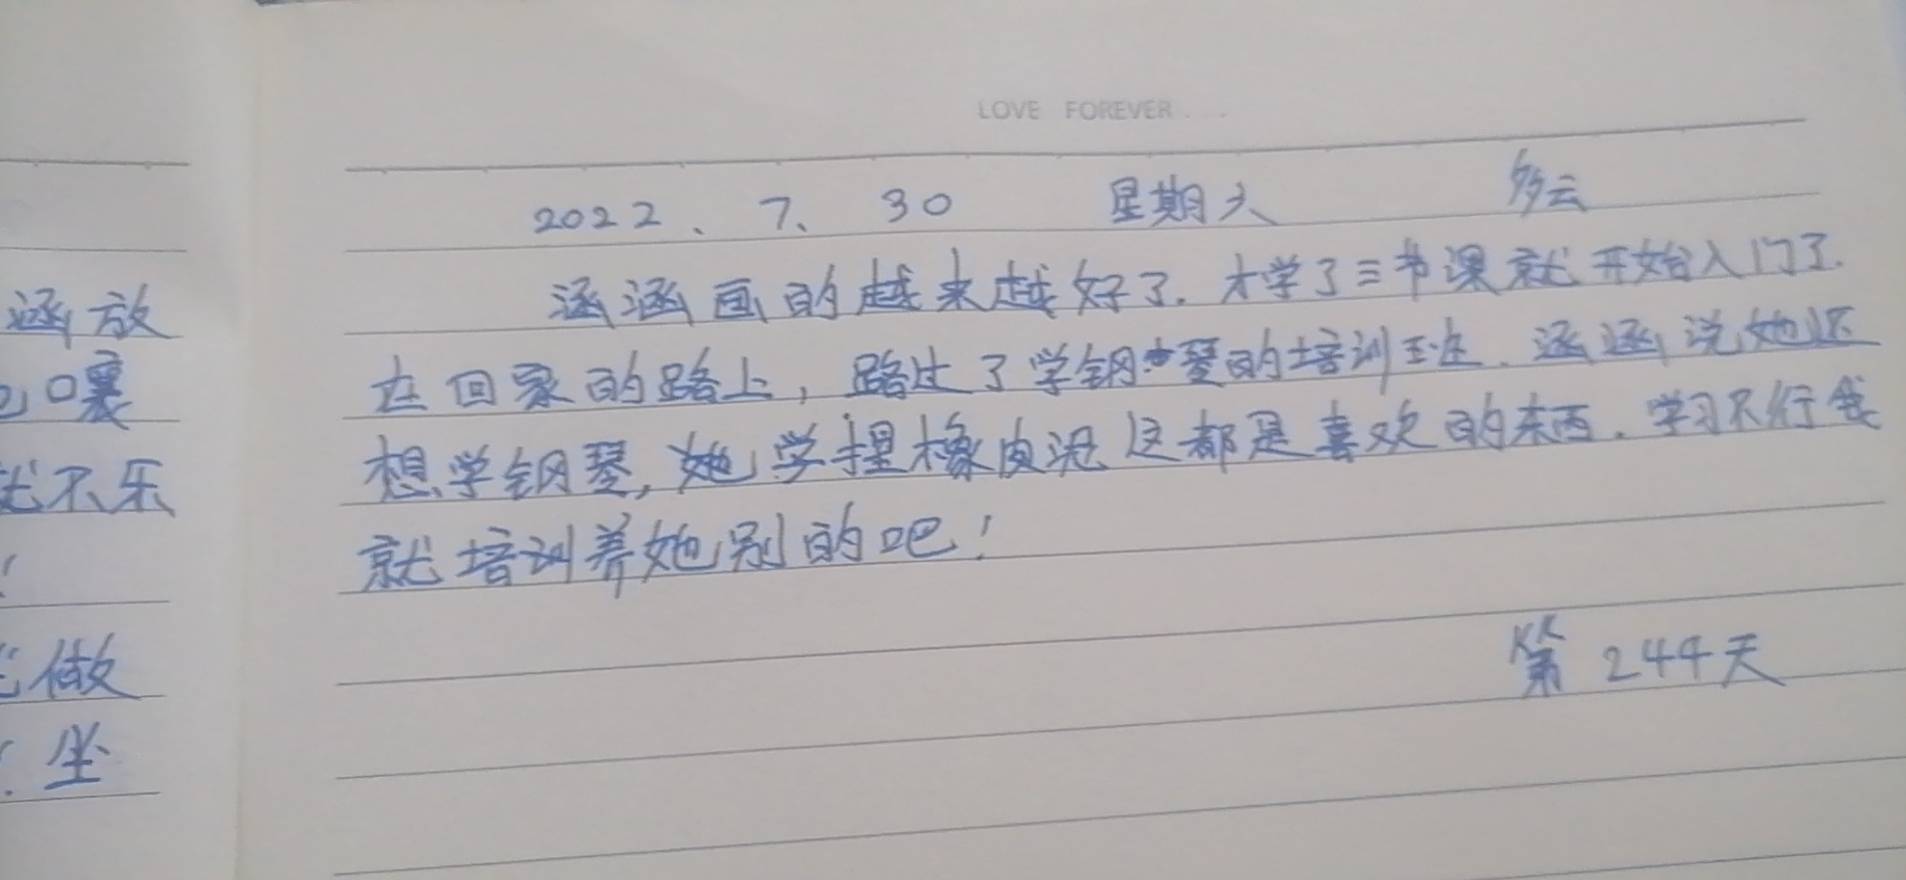 LOVE FOREVER...
2022、7、30 星期六 多云
涵涵画的越来越好了.才学了三节课就开始入门了.
在回家的路上,路过了学钢琴的培训班.涵涵说她还
想学钢琴,她学捏橡皮泥这都是喜欢的东西.学习不行我
就培训养她别的吧!
第244天
涵放
嚷
就不乐
!
做
.坐